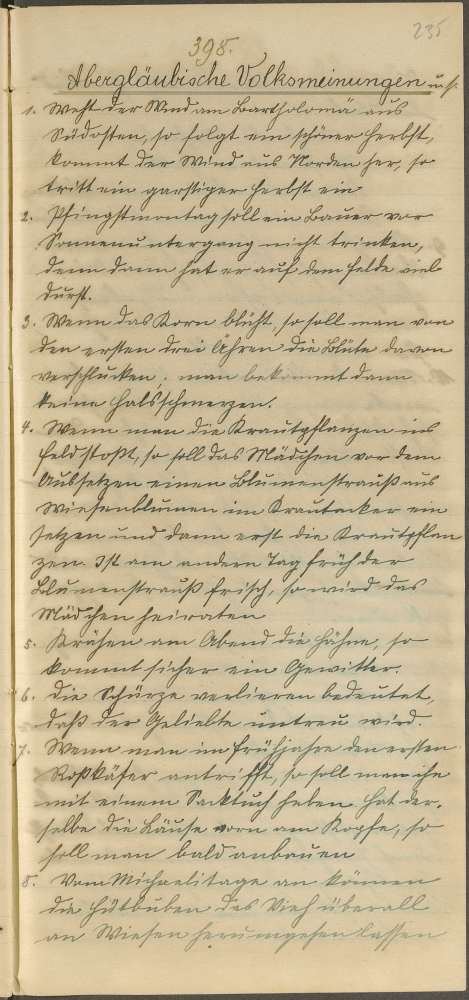 235
398.
Abergläubische Volksmeinungen u.s.f.
1. Weht der Wind am Bartholomä aus
Südosten, so folgt ein schöner Herbst,
kommt der Wind aus Norden her, so
tritt ein garstiger Herbst ein
2. Pfingstmontag soll ein Bauer vor
Sonnenuntergang nicht trinken,
denn dann hat er auf dem Felde viel
Durst.
3. Wenn das Korn blüht, so soll man von
den ersten drei Ähren die Blüte davon
verschlucken, man bekommt dann
keine Halsschmerzen.
4. Wenn man die Krautpflanzen ins
Feld stoßt, so soll das Mädchen vor dem
Aussetzen einen Blumenstrauß aus
Wiesenblumen im Krautacker ein
setzen und dann erst die Krautpflan
zen. Ist am andern Tag früh der
Blumenstrauß frisch, so wird das
Mädchen heiraten
5. Krähen am Abend die Hähne, so
kommt sicher ein Gewitter.
6. Die Schürze verlieren bedeutet,
daß der Geliebte untreu wird.
7. Wenn man im Frühjahre den ersten
Roßkäfer antrifft, so soll man ihn
mit einem Sacktuch heben. Hat der-
selbe die Läuse vorn am Kopfe, so
soll man bald anbauen
8. Vom Michaelitage an können
die Hütbuben das Vieh überall
an Wiesen herumgehen lassen